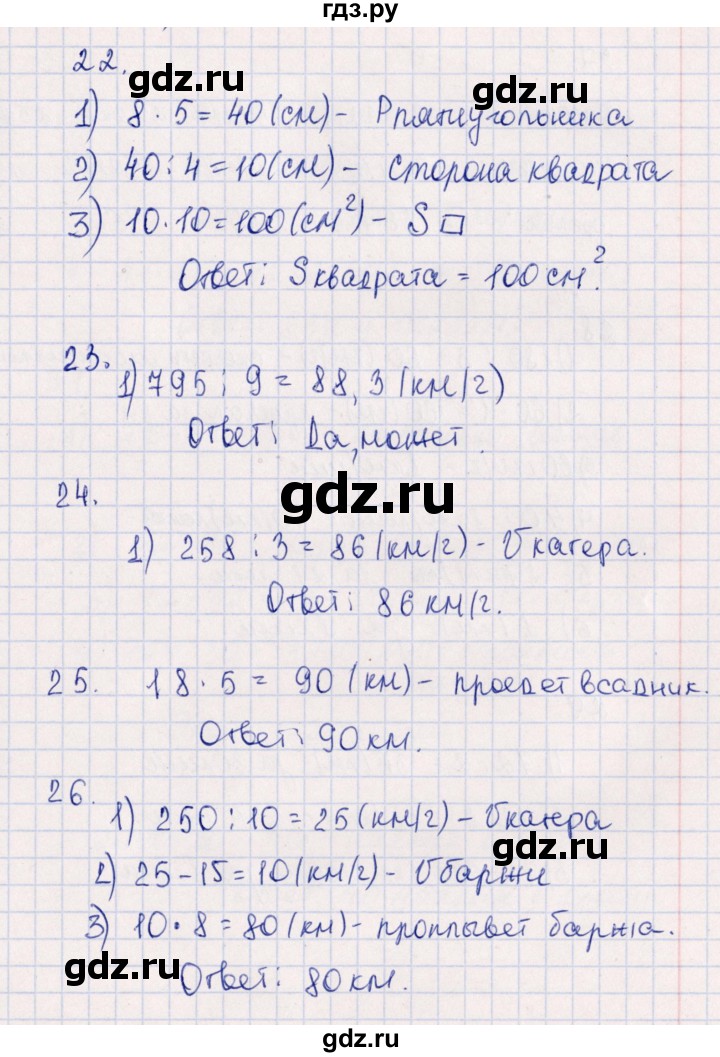 гдз.ру
22.
gdz.ru gdz.ru
1) 8 · 5 = 40 (см) - Pпрямоугольника
2) 40 : 4 = 10 (см) - сторона квадрата
3) 10 · 10 = 100 (см²) - S □
Ответ: S квадрата = 100 см².
23.
1) 795 : 9 = 88,3 (км/г)
Ответ: Да, может.
24.
gdz.ru
1) 258 : 3 = 86 (км/г) - V катера.
Ответ: 86 км/г.
25. 18 · 5 = 90 (км) - проедет всадник.
Ответ: 90 км.
26.
1) 250 : 10 = 25 (км/г) - V катера
gdz.ru
2) 25 - 15 = 10 (км/г) - V баржи
3) 10 · 8 = 80 (км) - проплывет баржа.
gdz.ru
Ответ: 80 км.
gdz.ru